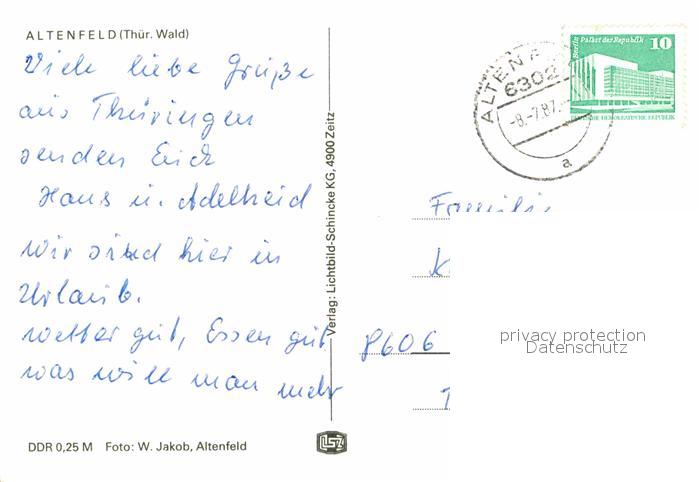 ALTENFELD (Thür. Wald)
Viele liebe Grüße
aus Thüringen
senden Euch
Hans u. Adelheid
wir sind hier in
Urlaub.
wetter gut, Essen gut
was will man mehr
DDR 0,25 M Foto: W. Jakob, Altenfeld
Verlag: Lichtbild-Schincke KG, 4900 Zeitz
6302
-8.-7.87.
a
Berlin Palast der Republik 10
DEMOKRATISCHE REPUBLIK
Familie
8606
privacy protection
Datenschutz